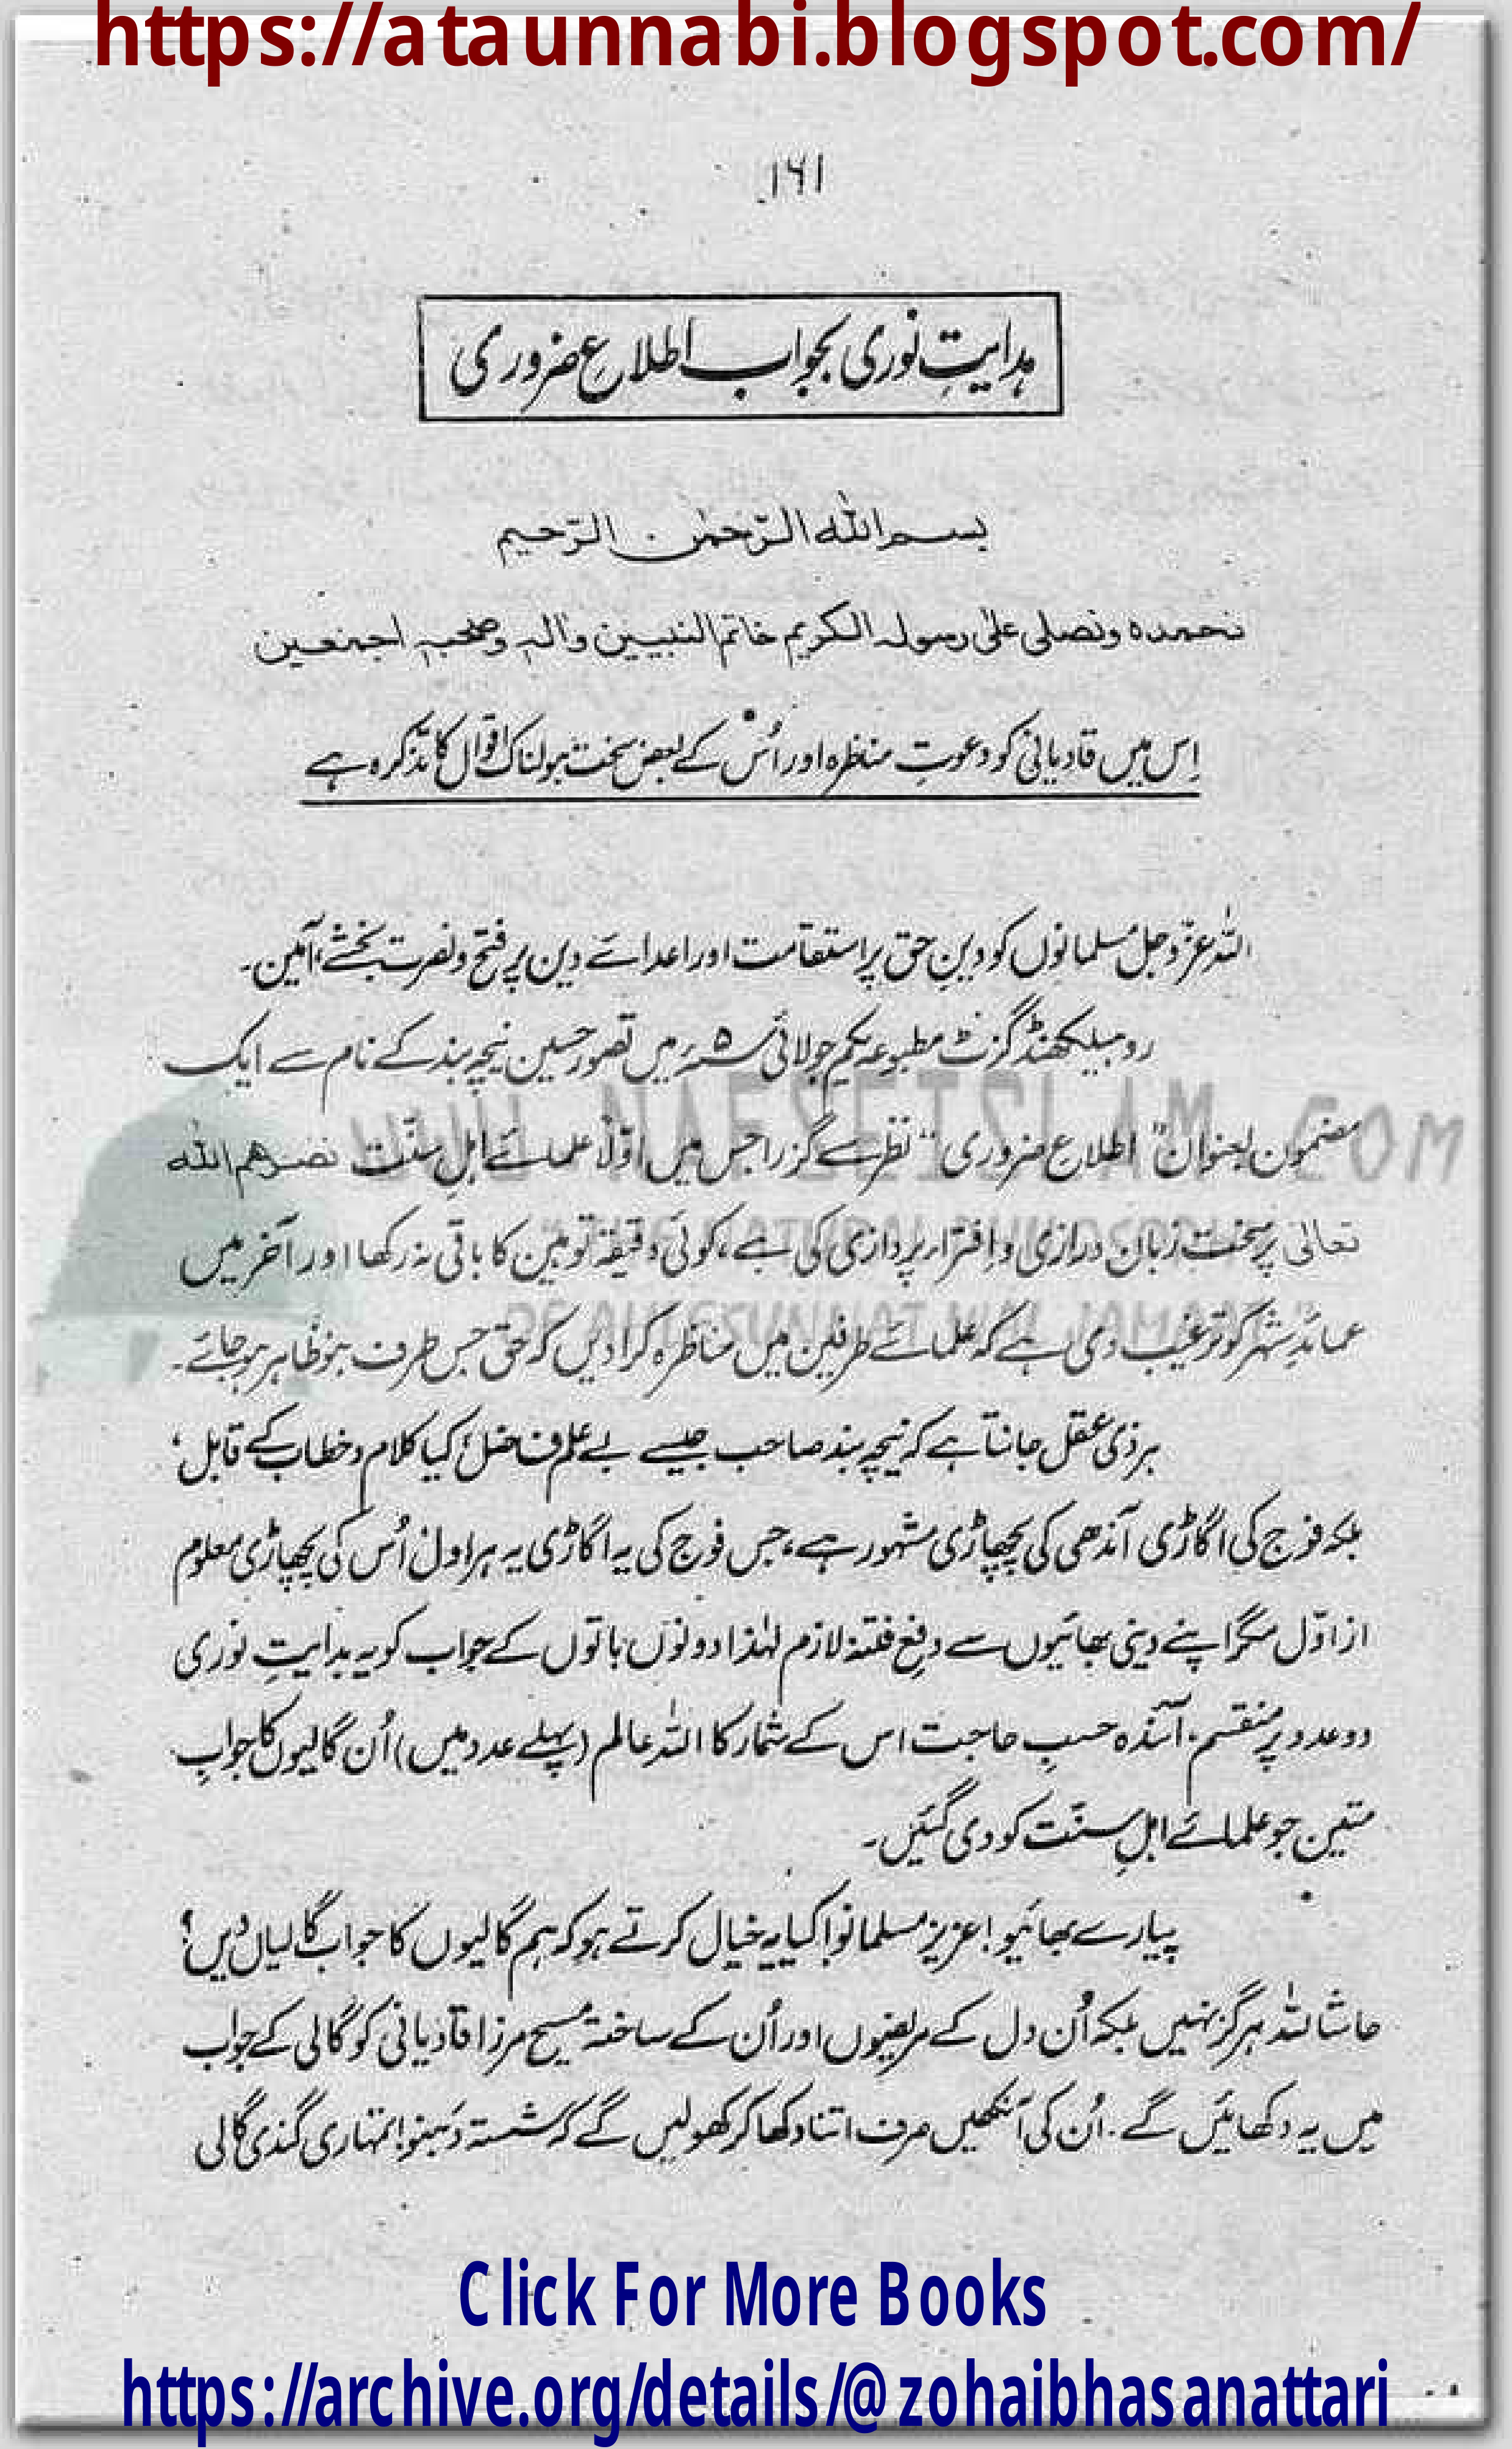 https://ataunnabi.blogspot.com/
۱۶۱
ہدایتِ نوری بجواب اطلاعِ ضروری
بسم اللہ الرّحمٰن الرّحیم
نحمدہ ونصلی علیٰ رسولہ الکریم خاتم النبیین واٰلہٖ وصحبہٖ اجمعین
اِس میں قادیانی کو دعوتِ مناظرہ اور اُس کے بعض سخت ہولناک اقوال کا تذکرہ ہے
اللہ عزّ وجل مسلمانوں کو دینِ حق پر استقامت اور اعدائے دین پر فتح ونصرت بخشے، آمین۔
روہیلکھنڈ گزٹ مطبوعہ یکم جولائی ۵ء میں تصور حسین نیچہ بند کے نام سے ایک
مضمون بعنوان "اطلاع ضروری" نظر سے گزرا جس میں اوّلاً علمائے اہلِ سنّت نصرھم اللہ
تعالی پر سخت زبان درازی و افتراء پردازی کی ہے، کوئی دقیقہ توہین کا باقی نہ رکھا اور آخر میں
عمائدِ شہر کو ترغیب دی ہے کہ علمائے طرفین میں مناظرہ کرادیں کہ حق جس طرف ہو ظاہر ہو جائے۔
ہر ذی عقل جانتا ہے کہ نیچہ بند صاحب جیسے بے علم فاضل، کیا کلام وخطاب کے قابل،
بلکہ فوج کی اگاڑی آندھی کی پچھاڑی مشہور ہے، جس فوج کی یہ اگاڑی یہ ہراول اُس کی پچھاڑی معلوم
از اوّل مگر اپنے دینی بھائیوں سے دفعِ فتنہ لازم لہٰذا دونوں باتوں کے جواب کو یہ ہدایتِ نوری
دو عدد پر منقسم، آئندہ حسبِ حاجت اس کے شمار کا اللہ عالم (پہلے عدد میں) اُن گالیوں کا جوابِ
متین جو علمائے اہلِ سنّت کو دی گئیں۔
پیارے بھائیو! عزیز مسلمانو! کیا یہ خیال کرتے ہو کہ ہم گالیوں کا جواب گالیاں دیں؟
حاشا للہ ہرگز نہیں بلکہ اُن دل کے مریضوں اور اُن کے ساختہ مسیح مرزا قادیانی کو گالی کے جواب
میں یہ دکھائیں گے۔ اُن کی آنکھیں صرف اتنا دکھا کر کھولیں گے کہ شستہ دہنو! تمہاری گندی گالی
WWW.NAFSEISLAM.COM
Click For More Books
https://archive.org/details/@zohaibhasanattari